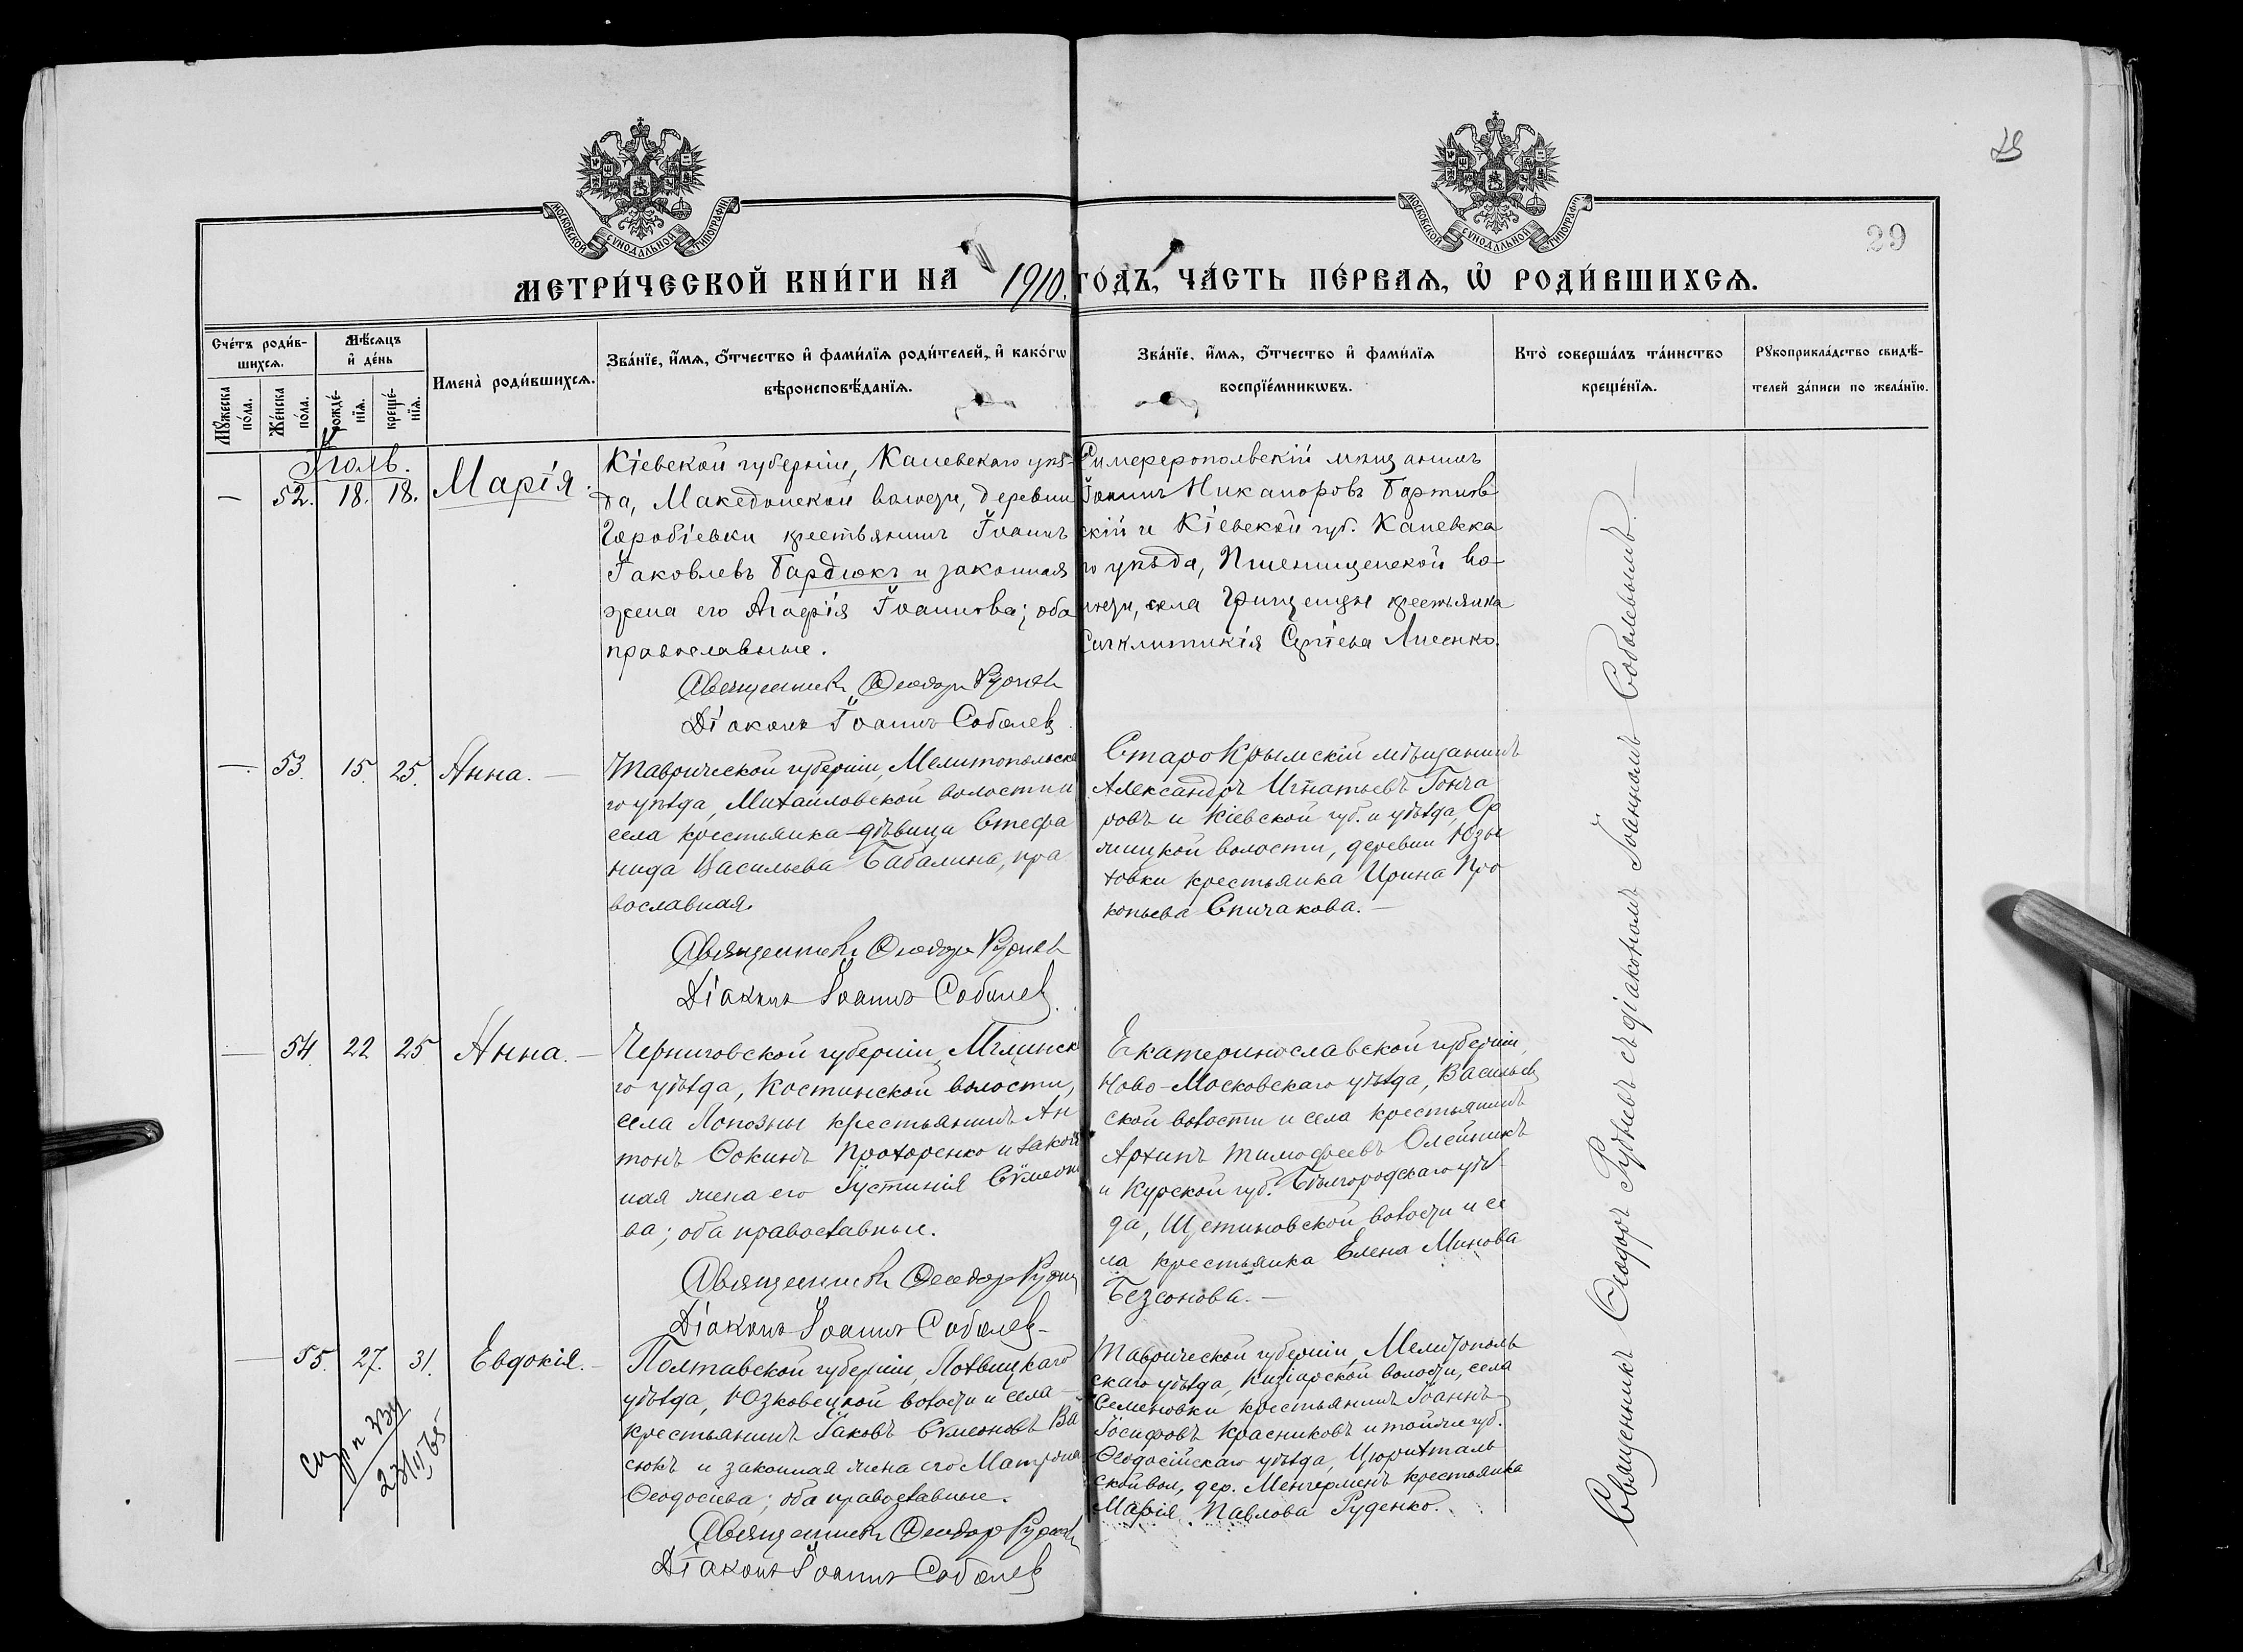 28
29
МОСКОВСКОЙ СѴНОДАЛЬНОЙ ТИПОГРАФІИ
МОСКОВСКОЙ СѴНОДАЛЬНОЙ ТИПОГРАФІИ
МЕТРИ́ЧЕСКОЙ КНИ́ГИ НА 1910. ГО́ДЪ, ЧА́СТЬ ПЕ́РВАѦ, Ѽ РОДИ́ВШИХСѦ.
Сче́тъ роди́в-
шихсѧ.
Мꙋ́жеска по́ла.
Же́нска по́ла.
Мѣ́сѧцъ
и҆ де́нь
рожде́-
нїѧ.
креще́-
нїѧ.
Имена̀ роди́вшихсѧ.
Зва́нїе, и҆́мѧ, ѻ҆́тчество и҆ фами́лїѧ роди́телей, и҆ како́гѡ
вѣроисповѣ́данїѧ.
Зва́нїе, и҆́мѧ, ѻ҆́тчество и҆ фами́лїѧ
воспрїе́мникѡвъ.
Кто̀ соверша́лъ та́инство
креще́нїѧ.
Рꙋкоприкла́дство свидѣ́-
телей за́писи по жела́нїю.
Іюль.
— 52. 18. 18. Марія.
Кіевской губерніи, Каневскаго уѣз-
да, Македонской волости, деревни
крестьянинъ Іоаннъ
Іаковлевъ Бардюкъ и законная
жена его Агафія Іоаннова; оба
православные.
Священникъ Ѳеодоръ Руднев
Діаконъ Іоаннъ Соболев
Симферопольскій мѣщанинъ
Іоаннъ Никаноровъ
скій и Кіевской губ. Каневска
го уѣзда, Пшеничецкой во-
лости, села Грищенцы крестьянка
Синклитикія Сергіева Лисенко.
— 53. 15. 25. Анна. —
Таврической губерніи, Мелитопольска
го уѣзда, Михайловской волости и
села крестьянка-дѣвица Стефа
нида Васильева Бабалина, пра
вославная.
Священникъ Ѳеодоръ Руднев
Діаконъ Іоаннъ Соболев
СтароКрымскій мѣщанинъ
Александръ Игнатьевъ Гонча
ровъ и Кіевской губ. и уѣзда,
волости, деревни
крестьянка Ирина Про
копьева Спичакова. —
— 54. 22 25 Анна. —
Черниговской губерніи, Мглинска
го уѣзда, Костинской волости,
села Лопозны крестьянинъ Ан
тонъ Прохоренко и закон
ная жена его Іустинія Сѵмеоно
ва; оба православные.
Священникъ Ѳеодоръ Рудн
Діаконъ Іоаннъ Соболев
Екатеринославской губерніи,
Ново-Московскаго уѣзда, Васильев
ской волости и села крестьянинъ
Архипъ Тимофеевъ Олейникъ
и Курской губ. Бѣлгородскаго уѣз
да, волости и се
ла крестьянка Елена Минова
Безсонова. —
— 55. 27. 31. Евдокія. —
Полтавской губерніи, Лохвицкаго
уѣзда, Юзковецкой волости и села
крестьянинъ Іаковъ Сѵмеоновъ Ва
сюкъ и законная жена его Матрона
Ѳеодосіева; оба православные.
Священникъ Ѳеодоръ Руднев
Діаконъ Іоаннъ Соболев
Таврической губерніи, Мелитополь
скаго уѣзда, Кизіарской волости, села
Семеновки крестьянинъ Іоаннъ
Іосифовъ Красниковъ и той же губ.
Ѳеодосійскаго уѣзда, Цюрихталь
ской вол., дер. Менгерменъ крестьянка
Марія Павлова Руденко.
Священникъ Ѳеодоръ Рудневъ съ діакономъ Іоанномъ Соболевымъ. —